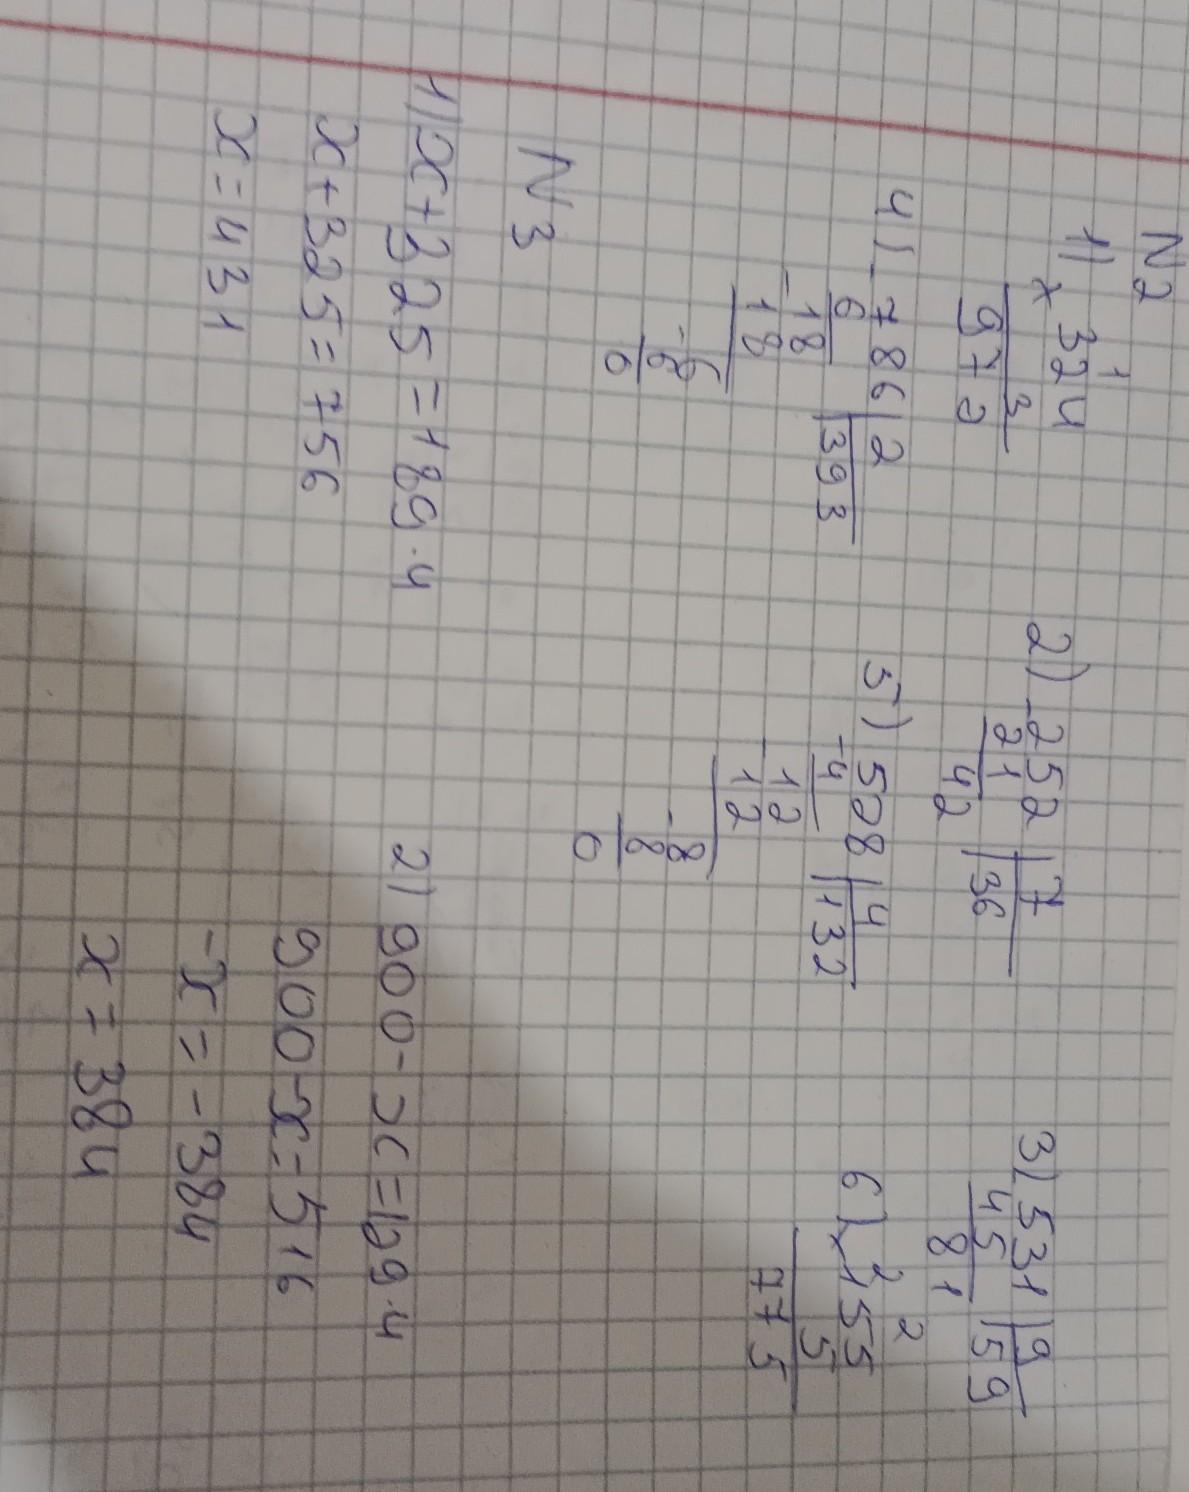 N2
1) × 324
3
972
1
2) -252 | 7
21 | 36
42
3) 531 | 9
45 | 59
81
4) -786 | 2
6 | 393
-18
18
-6
6
0
5) 528 | 4
-4 | 132
-12
12
-8
8
0
6) × 155
5
775
2 2
N3
1) x+325=189·4
x+325=756
x=431
2) 900-x=129·4
900-x=516
-x=-384
x=384